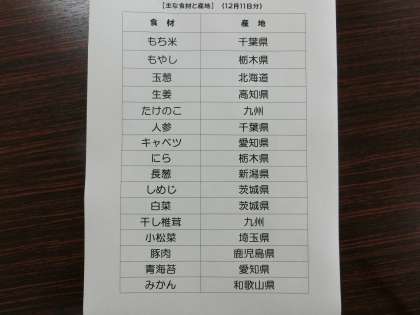 【主な食材と産地】 (12月11日分)
食材 産地
もち米 千葉県
もやし 栃木県
玉葱 北海道
生姜 高知県
たけのこ 九州
人参 千葉県
キャベツ 愛知県
にら 栃木県
長葱 新潟県
しめじ 茨城県
白菜 茨城県
干し椎茸 九州
小松菜 埼玉県
豚肉 鹿児島県
青海苔 愛知県
みかん 和歌山県